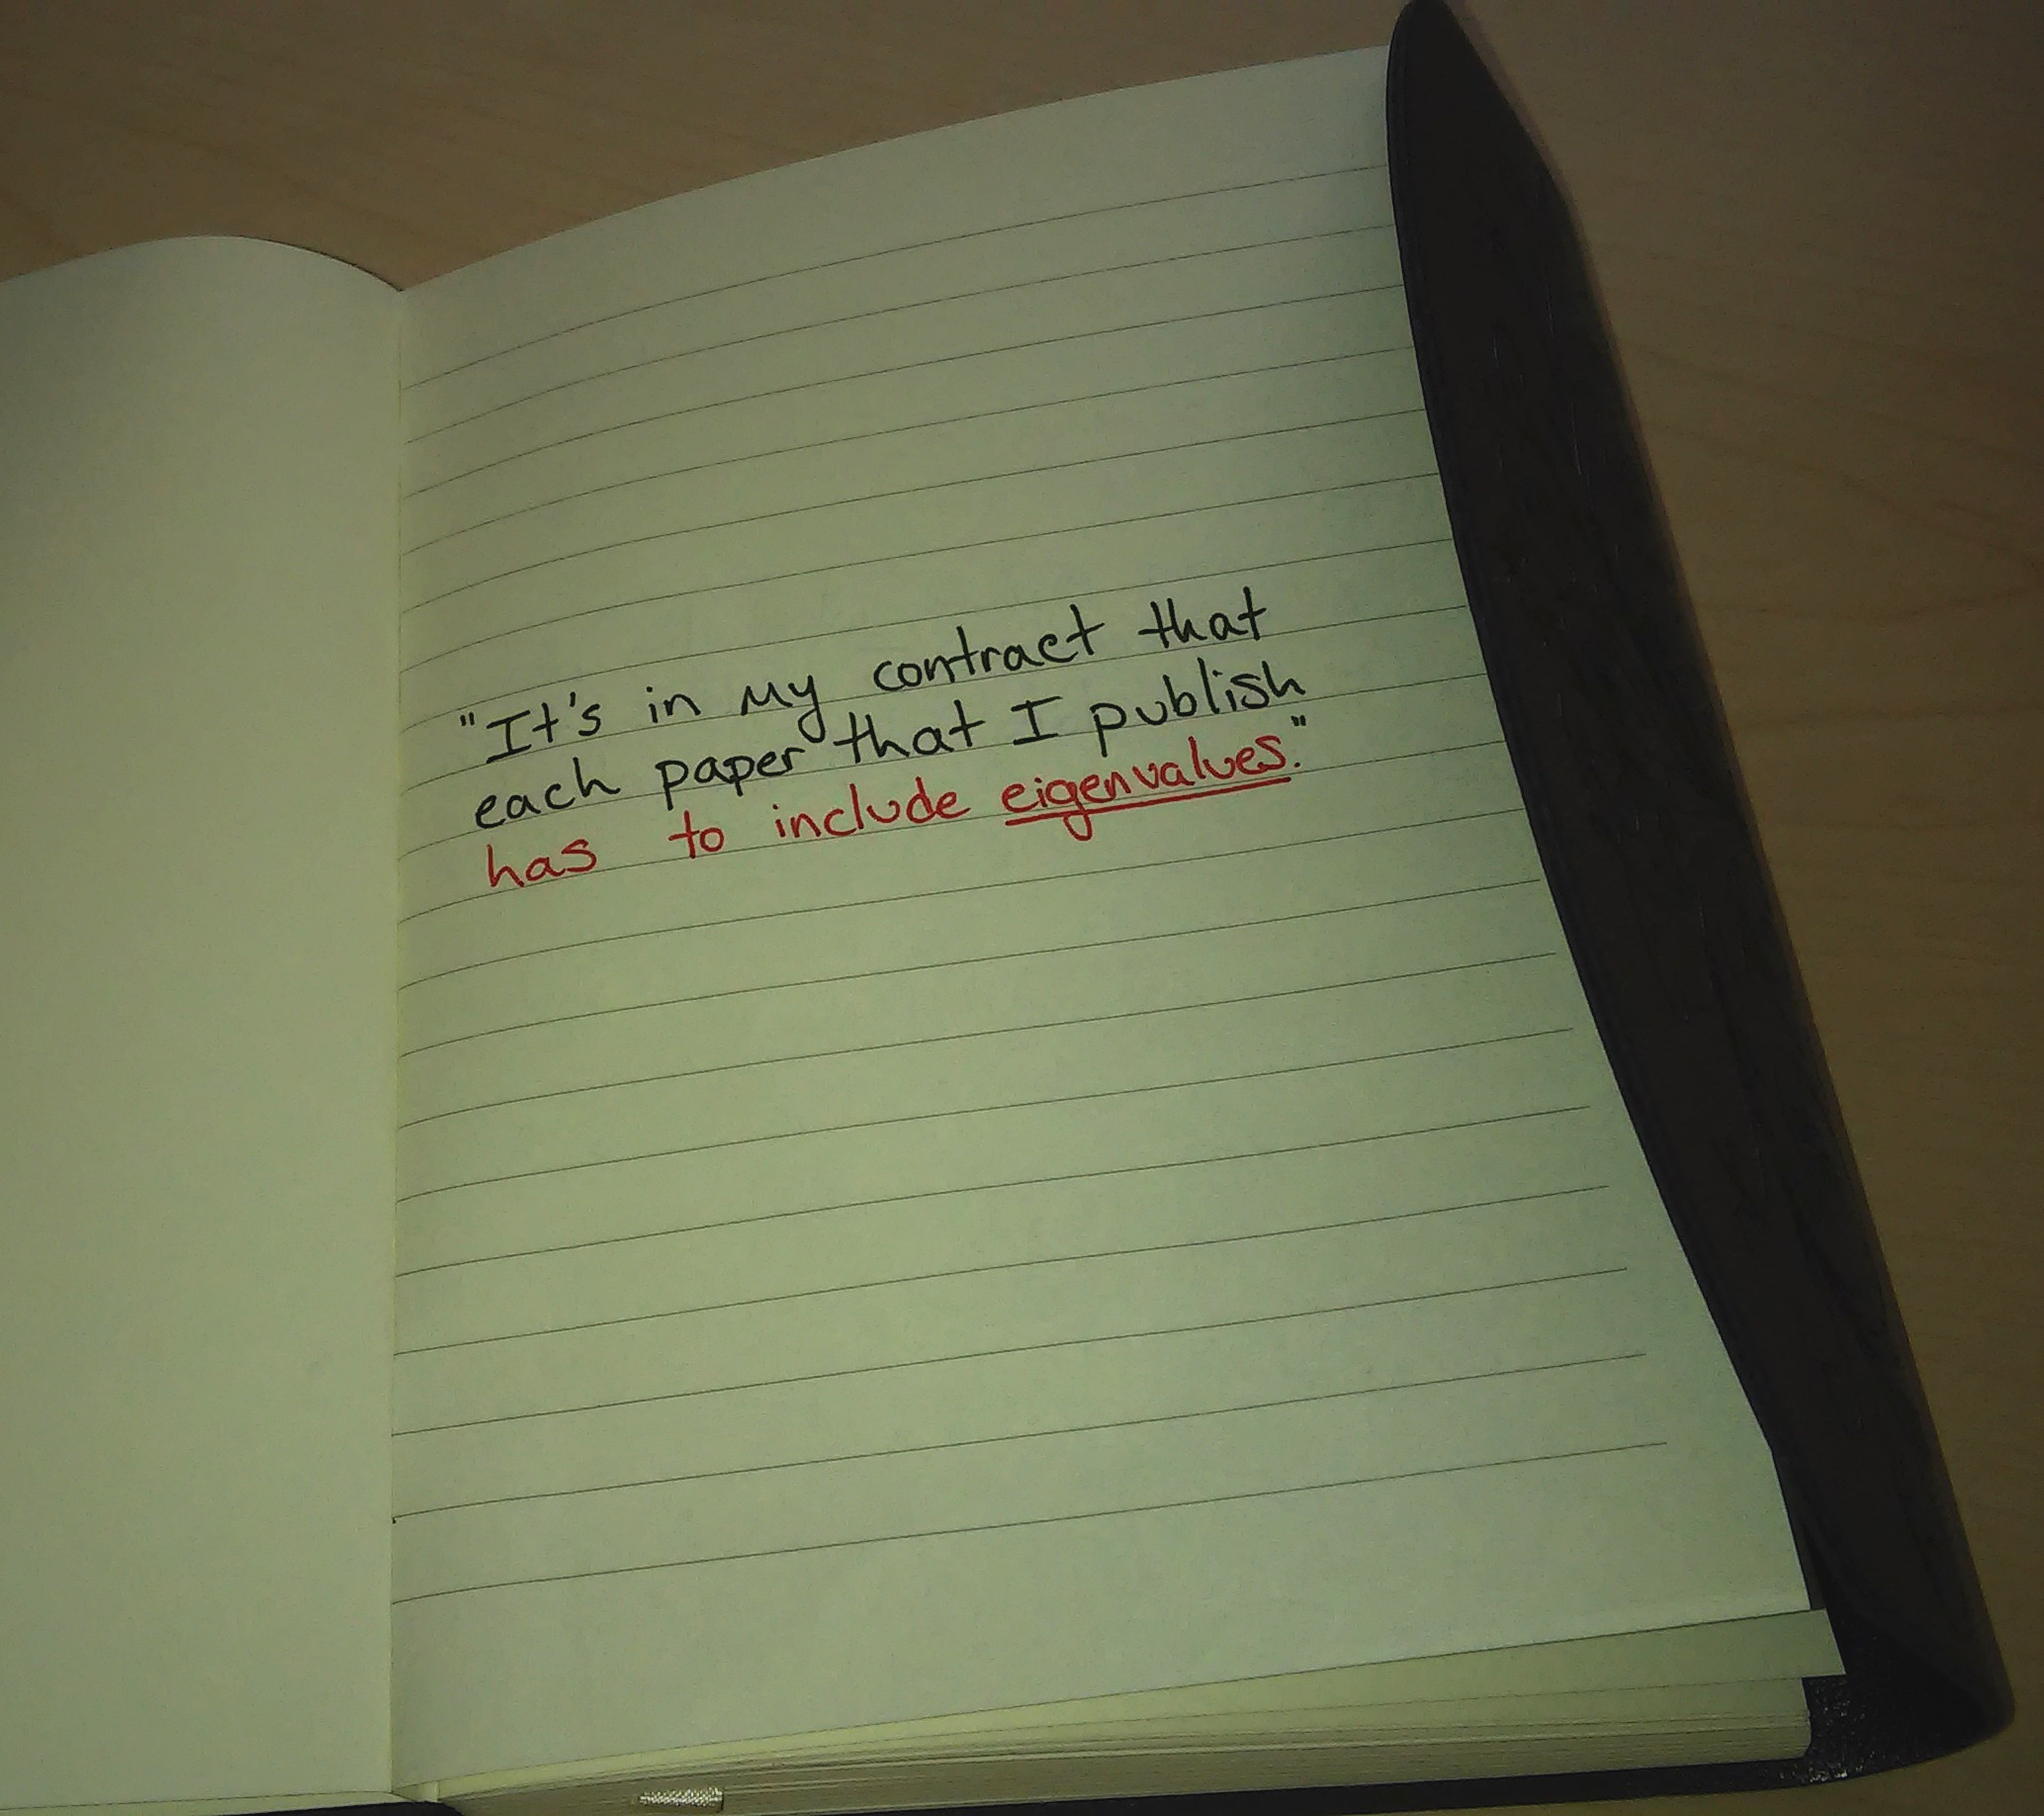 "It's in my contract that
each paper that I publish
has to include eigenvalues."